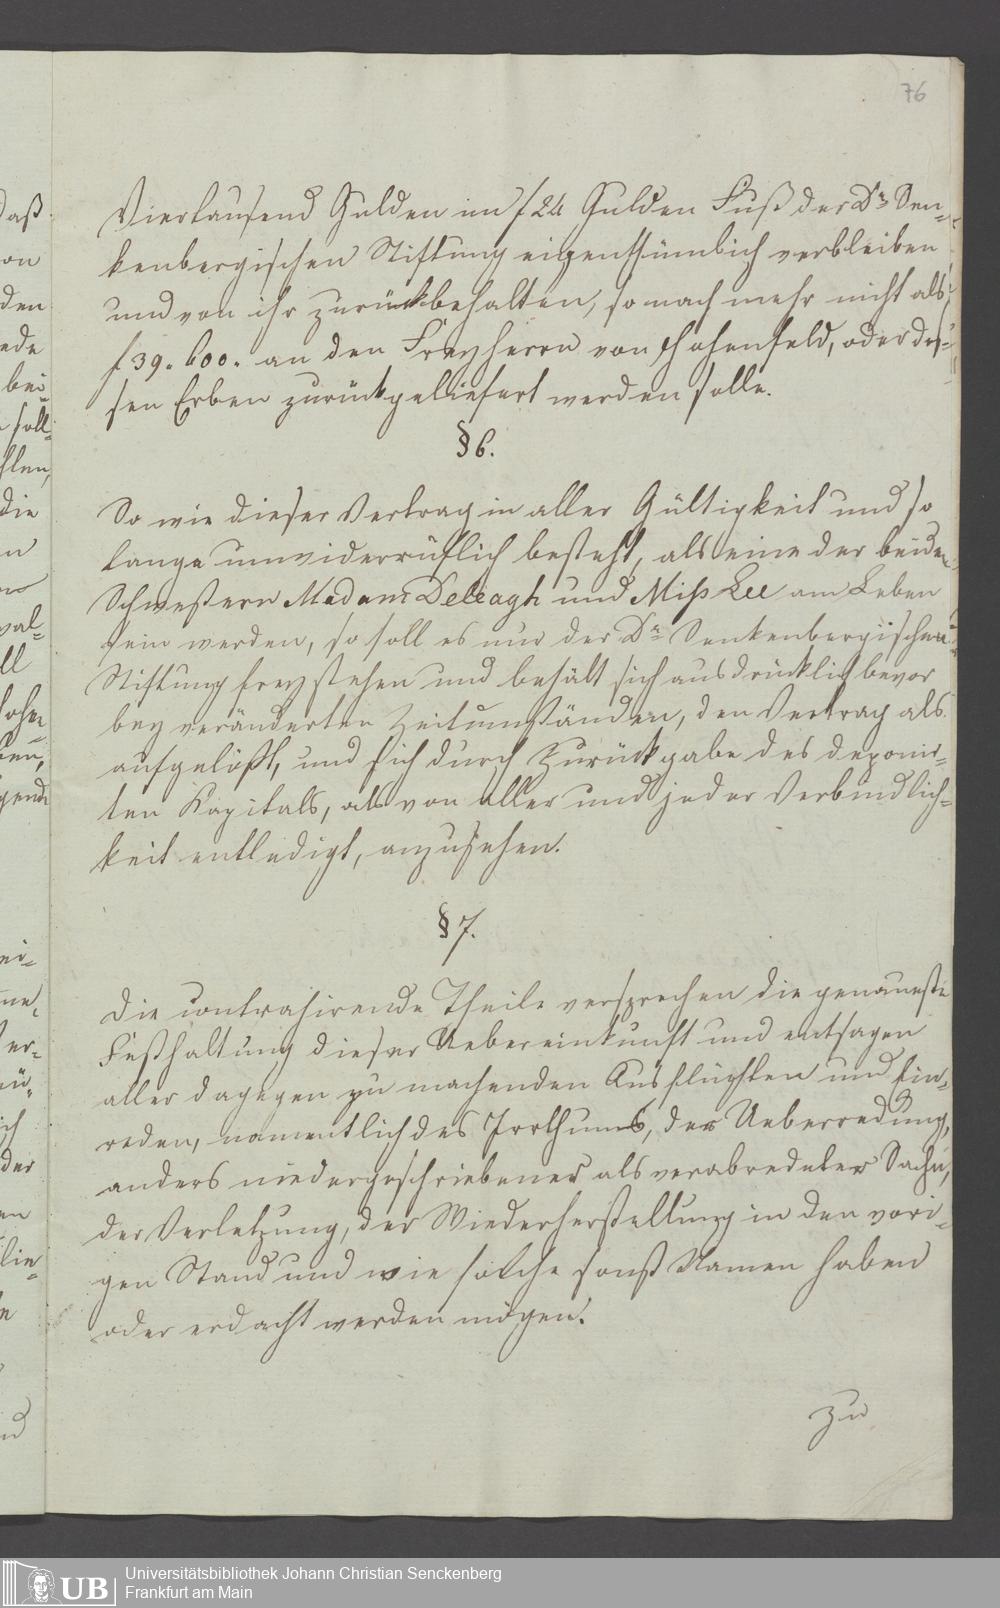 76
Viertausend Gulden im f 24 Gulden Fuß der Dr Sen-
kenbergischen Stiftung eigenthümlich verbleiben
und von ihr zurückbehalten, so nach mehr nicht als
f 39. 600. an den Freyherrn von Hohenfeld, oder des-
sen Erben zurückgeliefert werden solle.
§ 6.
So wie dieser Vertrag in aller Gültigkeit und so
lange unwiderrüflich besteht, als eine der beiden
Schwestern Madam Deleagh und Miss Lee am Leben
sein werden, so soll es nur der Dr Senkenbergischen
Stiftung frey stehen und behält sich ausdrücklich bevor
bey veränderten Zeitumständen, den Vertrag als
aufgelößt, und sich durch Zurückgabe des deponir-
ten Kapitals, als von aller und jeder Verbindlich-
keit entledigt, anzusehen.
§ 7.
Die contrahirende Theile versprechen die genaueste
Festhaltung dieser Uebereinkunft und entsagen
aller dagegen zu machenden Ausflüchten und Ein-
reden, namentlich des Irrthums, der Ueberredung,
anders niedergeschriebener als verabredeter Sache,
der Verletzung, der Wiederherstellung in den vori-
gen Stand und wie solche sonst Namen haben
oder erdacht werden mögen.
zu
daß
on
den
ede
bei-
soll-
hlen,
die
val-
ll
gende
ei-
er-
ich
der
en
lie-
UB
Universitätsbibliothek Johann Christian Senckenberg
Frankfurt am Main